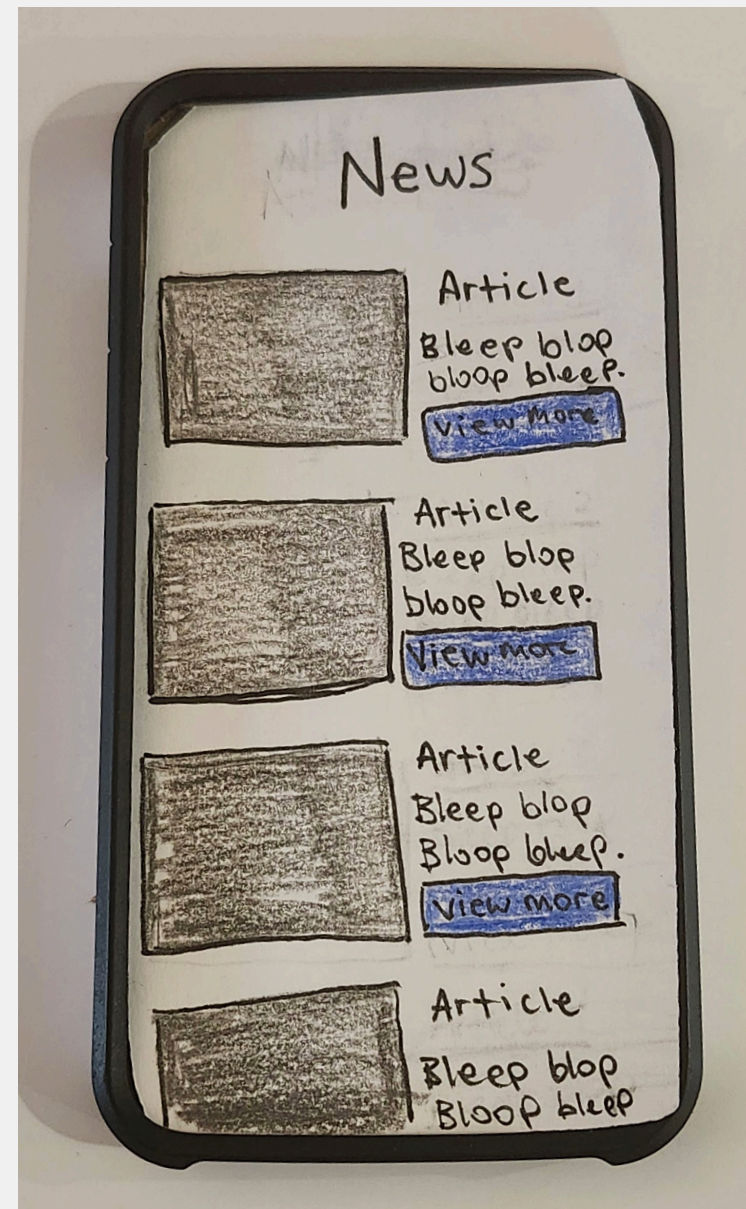 News
Article
Bleep blop
bloop bleep.
View more
Article
Bleep blop
bloop bleep.
View more
Article
Bleep blop
Bloop bleep.
View more
Article
Bleep blop
Bloop bleep